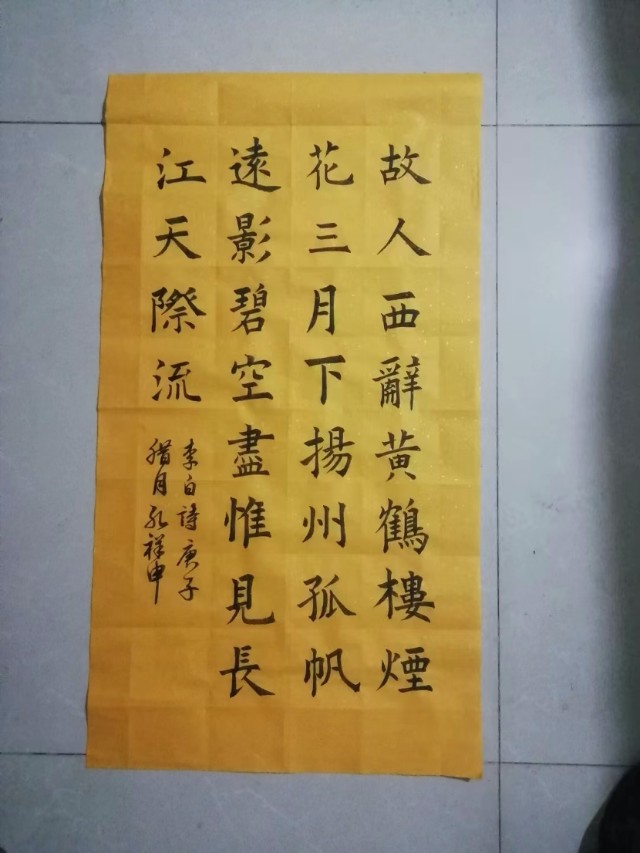 故人西辭黄鶴樓煙
花三月下揚州孤帆
遠影碧空盡惟見長
江天際流
李白詩庚子
腊月孔祥申